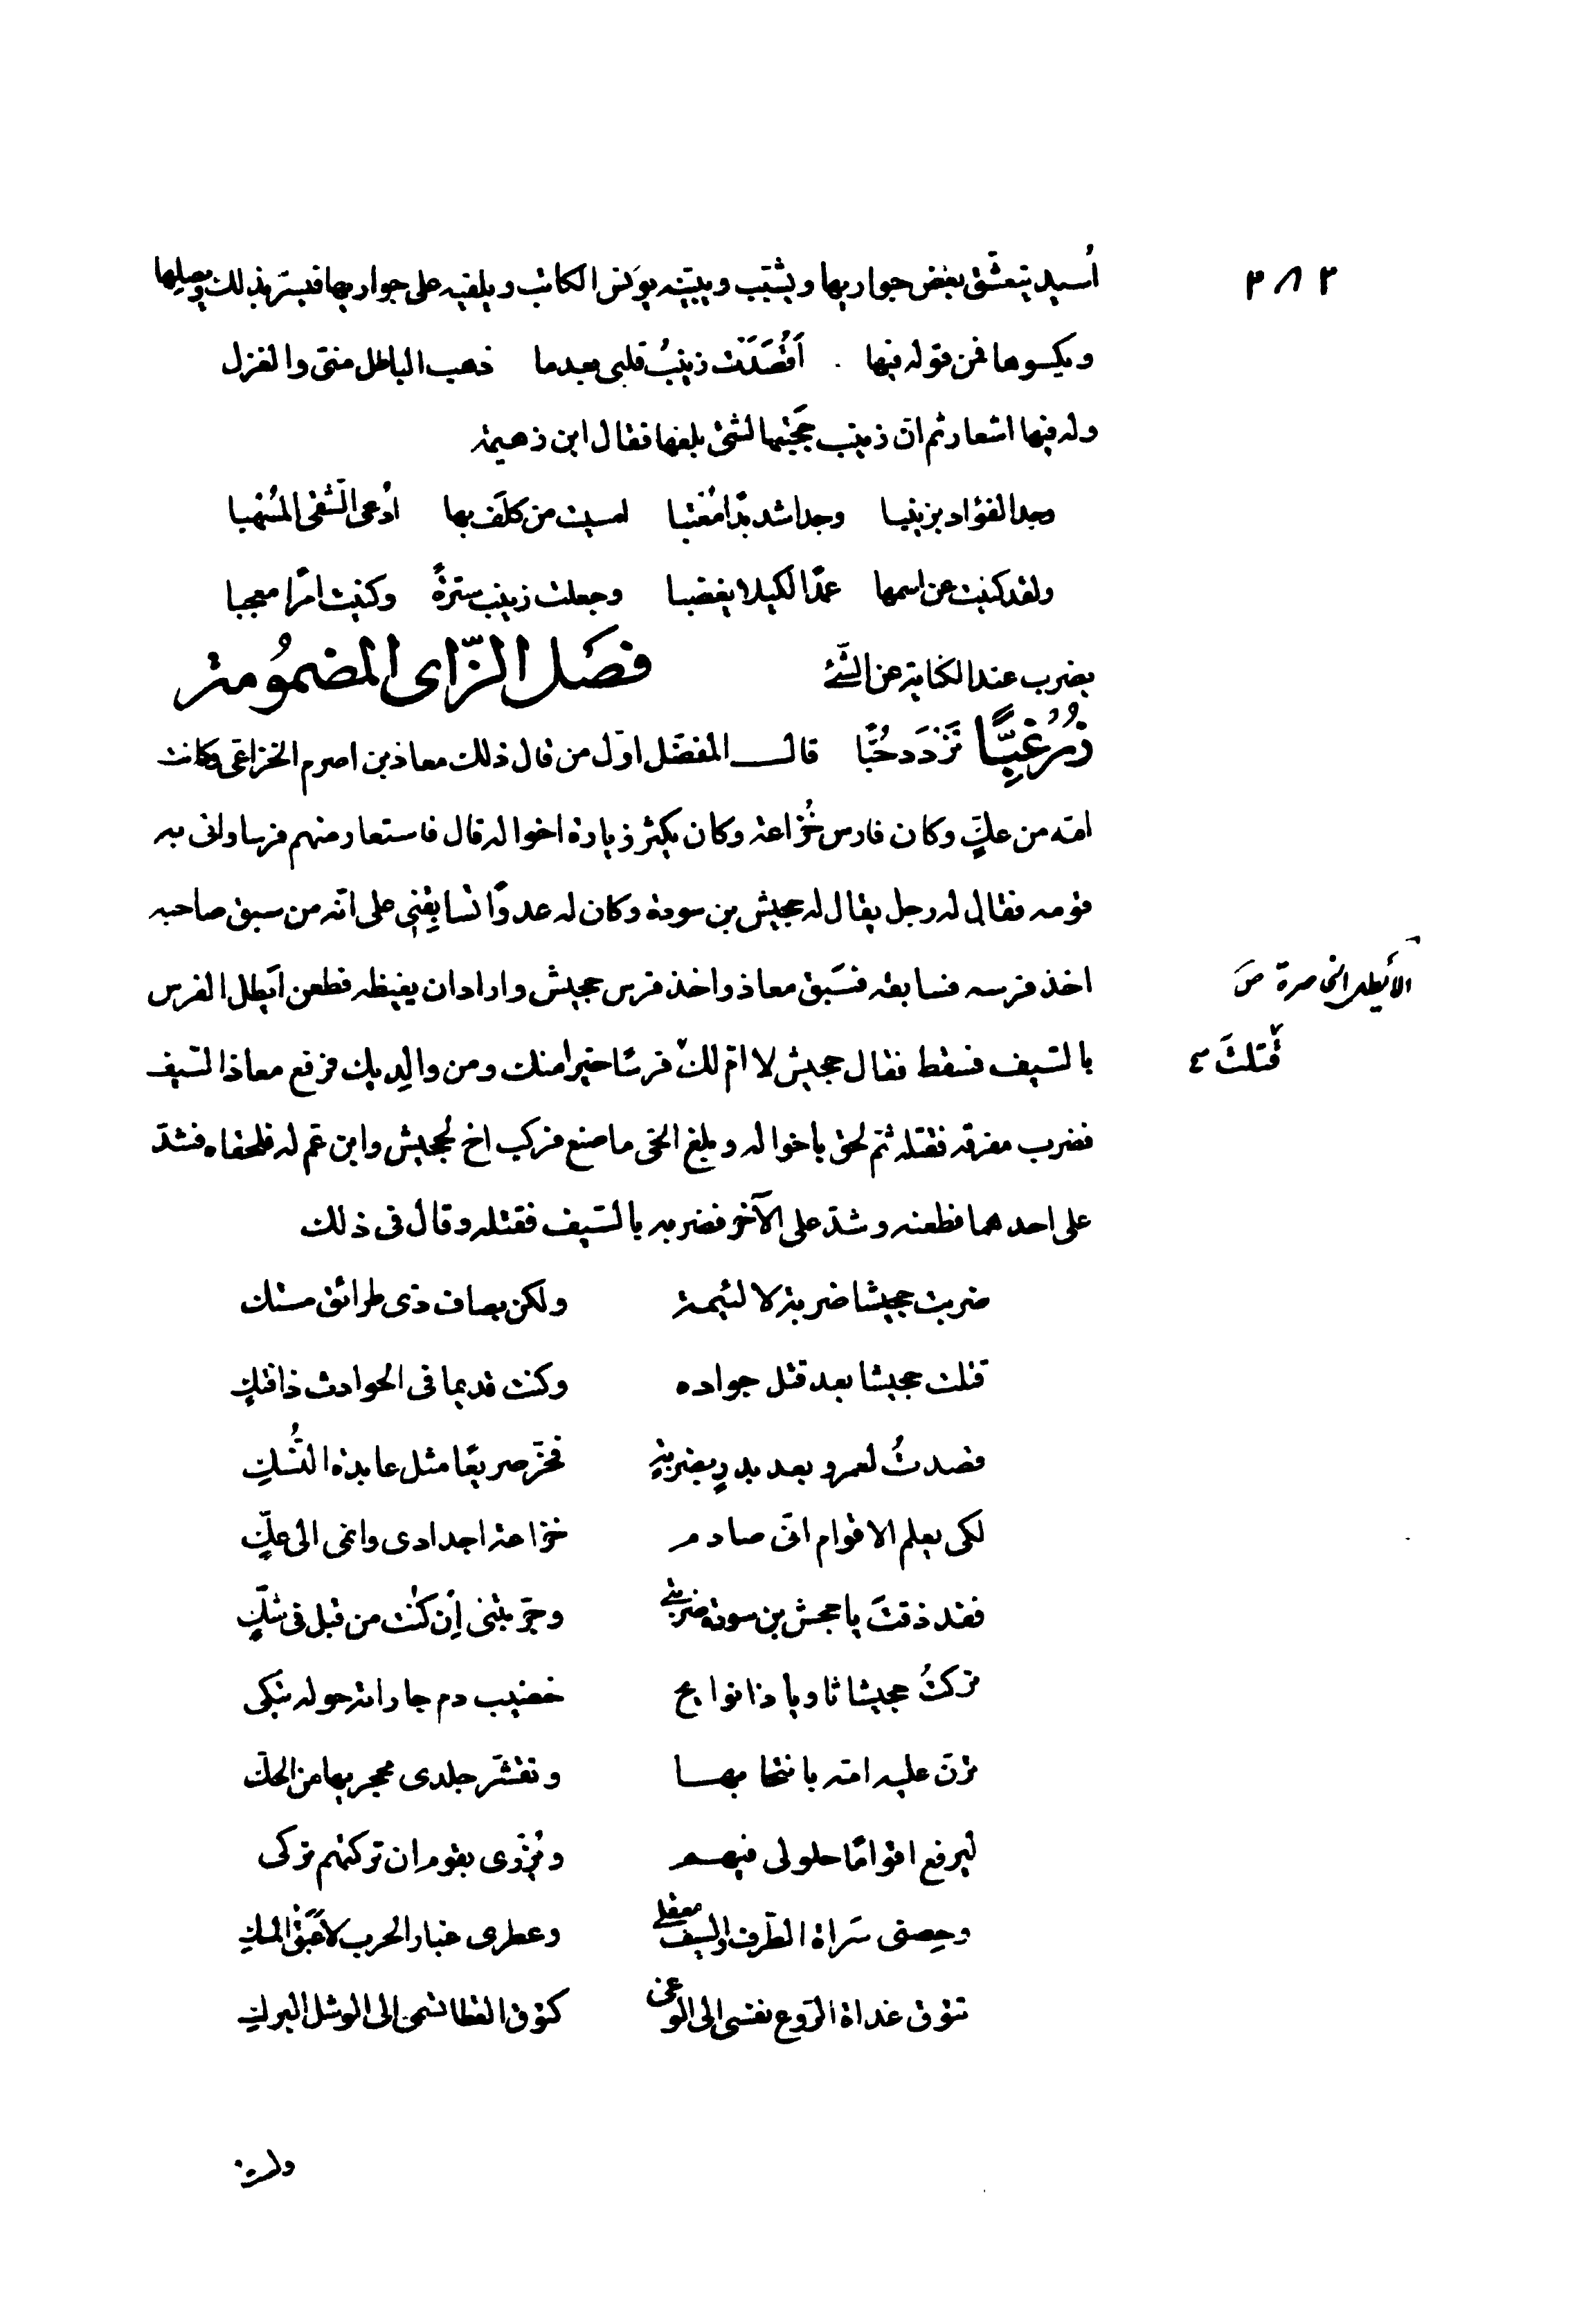 ٣٨٢
أسيد يتعشّق بعض جواريها ويشبّب وبيته يونس الكاتب ويلقيه على جواريها فيسرّ بذلك ويصلها
ويكسوها فمن قوله فيها أقصَدَت زينبُ قلبى بعدما ذهب الباطل منّى والغزل
وله فيها اشعار ثم انّ زينب حجبها لشئ بلغها فقال ابن زهيمة
وجد الفؤاد بزينبا وجدا شديدًا مُتعبا امسيت من كلَف بها أدعى الشقى المُسهبا
ولقد كنيت عن اسمها عمدًا لكيلا يغضبا وجعلت زينب سترةً وكنيت امرًا معجبا
يضرب عند الكناية عن الشّئ فصَل الزّاى المضمُومة
زُرْ غِبًّا تَزْدَد حُبًّا قال المفضّل اوّل من قال ذلك معاذ بن اصرم الخزاعى وكانت
امّه من عكٍّ وكان فارس خُزاعة وكان يكثر زيارة اخواله قال فاستعار منهم فرسا واتى به
قومه فقال له رجل يقال له جحيش بن سودة وكان له عدوًّا تسابقنى على انّه من سبق صاحبه
اخذ فرسه فسابقه فسَبق معاذ واخذ فرس جحيش واراد ان يغيظه فطعن ايَطل الفرس
الأيطل الخاصرة صَ
بالسّيف فسقط فقال جحيش لا امّ لك فرسًا خيرا منك ومن والِديك فرفع معاذ السّيف
قتلتَ
فضرب مفرقه فقتله ثمّ لحق باخواله وبلغ الحىّ ما صنع فركب اخ لجحيش وابن عم له فلحقاه فشدّ
على احدهما فطعنه وشدّ على الآخر فضربه بالسّيف فقتله وقال فى ذلك
ضربت جحيشا ضربة لا لئيمة ولكن بصاف ذى طرائق مستك
قتلت جحيشا بعد قتل جواده وكنت قديما فى الحوادث ذا فتكٍ
قصدتُ لعمرو بعد بدرٍ بضربةٍ فخرّ صريعًا مثل عابدة النُّسكِ
لكى يعلم الاقوام انّى صارم خزاعة اجدادى وانمى الى عكٍّ
فقد ذقتَ يا جحش بن سودة ضربتى وجرّبتنى إن كنت من قبل فى شكٍّ
تركتُ جحيشا ثاويا ذا نوائح خضيب دم جاراته حوله تبكى
ترنّ عليه امّه بانتحابها وتقشر جلدى محجريها من الحكّ
ليرفع اقوامًا حلولى فيهم ويُزرى بقوم ان تركتهم تركى
وحِصنى سَراة الطّرف والسيف معقلى وعطرى غبار الحرب لا عَبَق المسك
تتوق غداة الرّوع نفسى الى الوغى كتوق القطا تسمو الى الوشل البرك
ولست